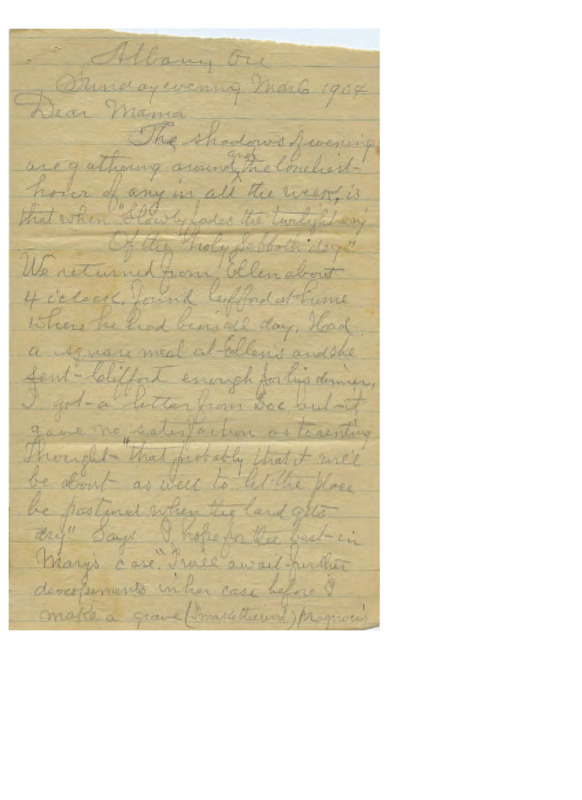 Albany Ore
Sunday evening Mar 6 1904
Dear Mama
The shadows of evening
are gathering around and the loneliest
hour of any in all the week, is
that when "Slowly fades the twilight
Of the "holy Sabbath day"
We returned from Ellen about
4 o'clock. Found Clifford at home
where he had been all day. Had
a square meal at Ellen's and she
sent Clifford enough for his dinner.
I got a letter from Doc but it
gave no satisfaction as to renting
Thought "that probably that it will
be about as well to let the place
be pastured when the land gets
dry" Says "I hope for the best in
Mary's case." I will await further
developements in her case before I
make a grave ( ) prognosis